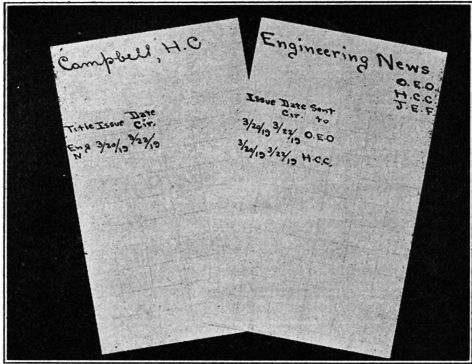 Campbell, H.C
Date
Title Issue Cir.
Eng 3/20/19 3/22/19
N
Engineering News
O.E.O.
H.C.C.
J.E.F.
Issue Date Sent
Cir. to
3/20/19 3/22/19 O.E.O
3/20/19 3/22/19 H.C.C.